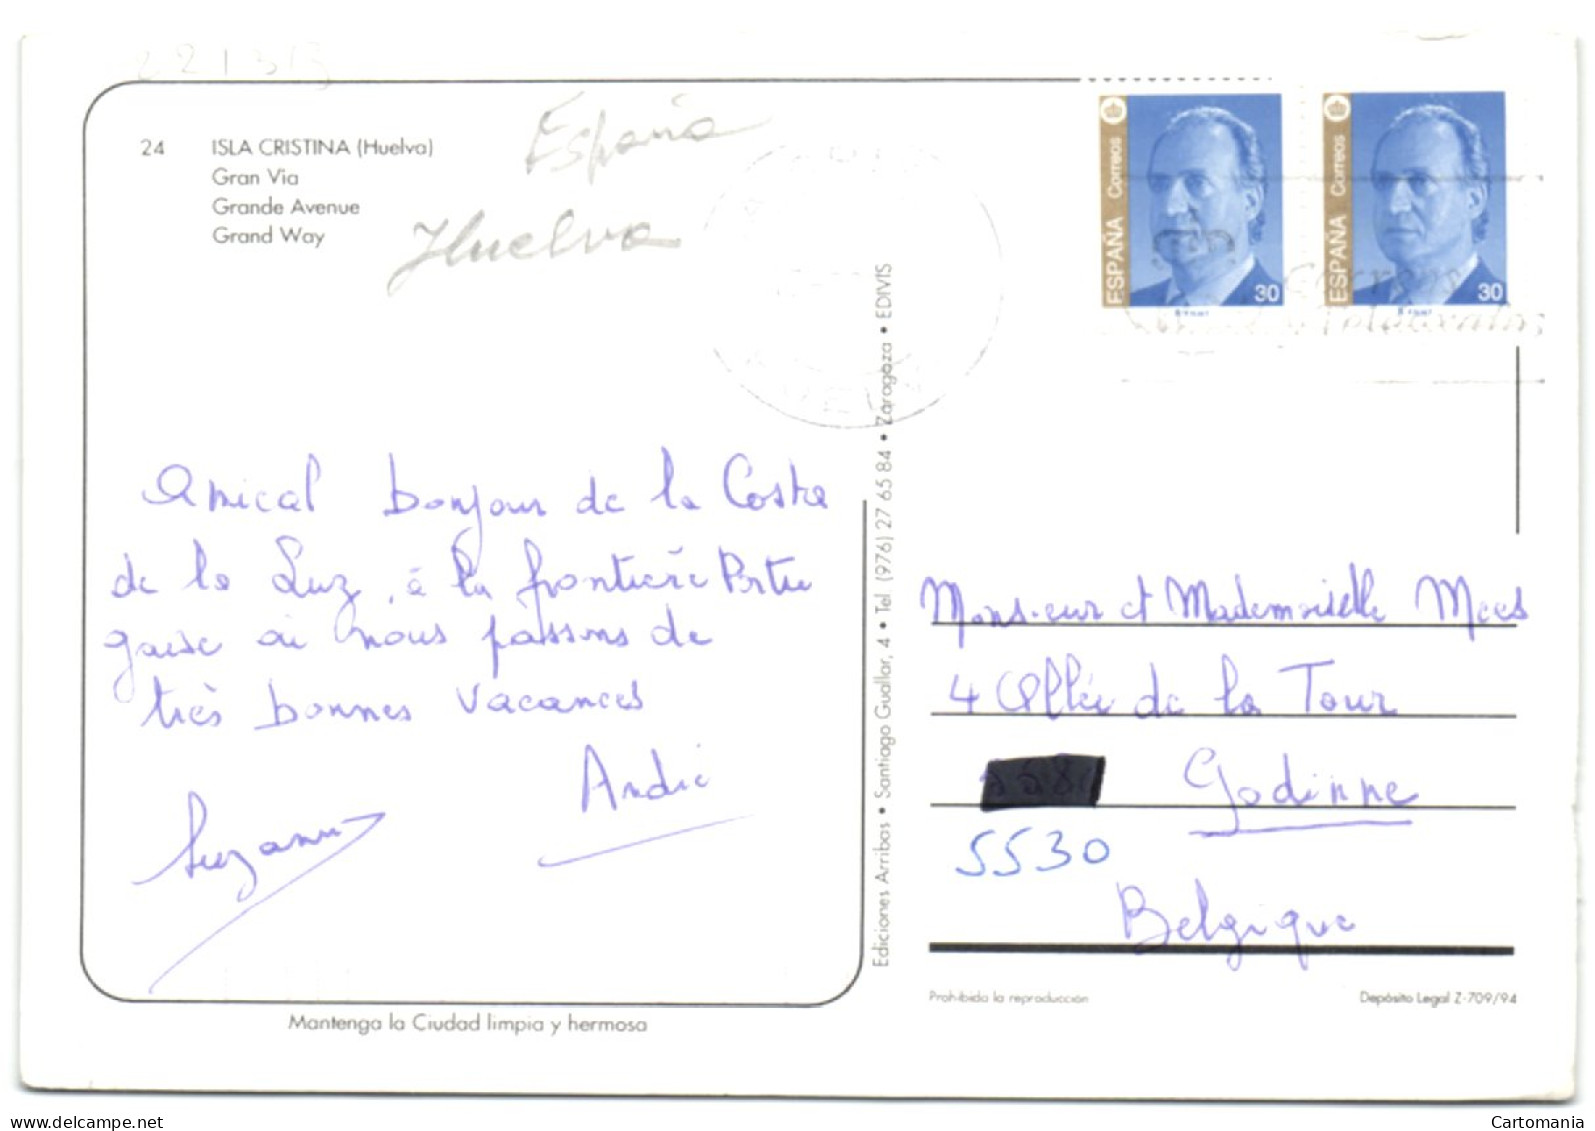 24 ISLA CRISTINA (Huelva)
Gran Via
Grande Avenue
Grand Way
España
Huelva
ESPAÑA Correos 30
ESPAÑA Correos 30
Correos
Amical bonjour de la Costa
de la Luz, à la frontière Portu
gaise où nous passons de
très bonnes vacances
André
Suzanne
Mantenga la Ciudad limpia y hermosa
Ediciones Arribas • Santiago Guallar, 4 • Tel. (976) 27 65 84 • Zaragoza • EDIVIS
Monsieur et Mademoiselle Mees
4 Allée de la Tour
Godinne
5530
Belgique
Prohibida la reproducción
Depósito Legal Z-709/94
Cartomania